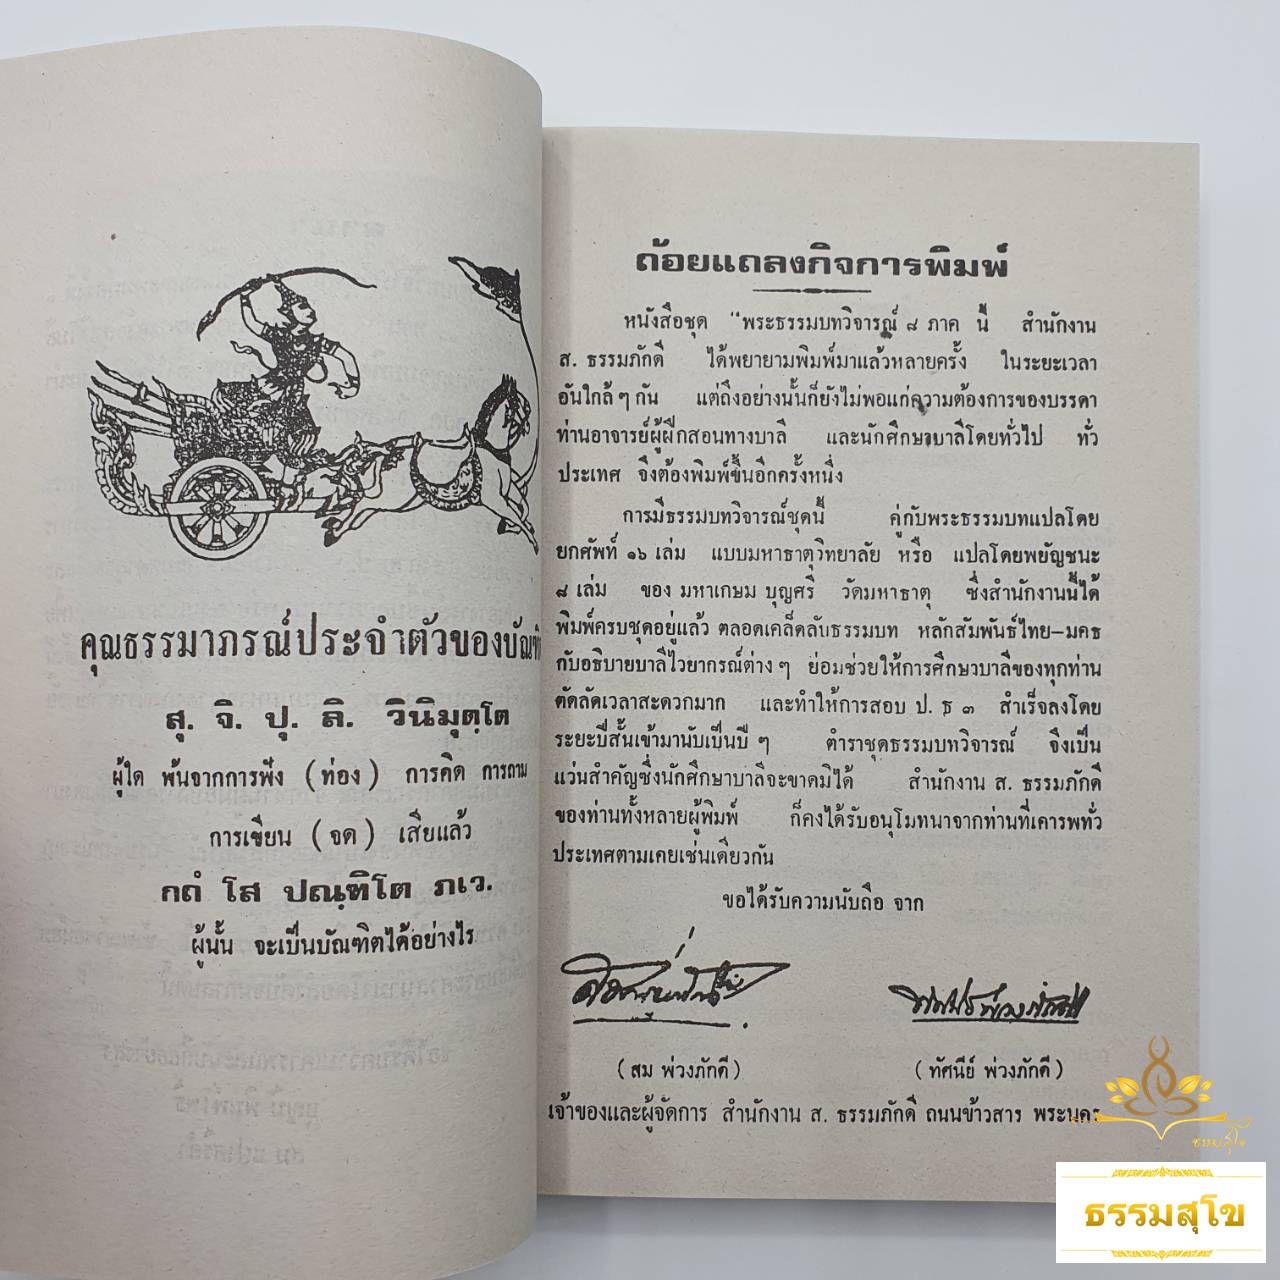 คุณธรรมาภรณ์ประจำตัวของบัณฑิ
สุ. จิ. ปุ. ลิ. วินิมุตฺโต
ผู้ใด พ้นจากการฟัง (ท่อง) การคิด การถาม
การเขียน (จด) เสียแล้ว
กถํ โส ปณฺฑิโต ภเว.
ผู้นั้น จะเป็นบัณฑิตได้อย่างไร
ถ้อยแถลงกิจการพิมพ์
หนังสือชุด "พระธรรมบทวิจารณ์ ๘ ภาค นี้ สำนักงาน
ส. ธรรมภักดี ได้พยายามพิมพ์มาแล้วหลายครั้ง ในระยะเวลา
อันใกล้ ๆ กัน แต่ถึงอย่างนั้นก็ยังไม่พอแก่ความต้องการของบรรดา
ท่านอาจารย์ผู้ฝึกสอนทางบาลี และนักศึกษาบาลีโดยทั่วไป ทั่ว
ประเทศ จึงต้องพิมพ์ขึ้นอีกครั้งหนึ่ง
การมีธรรมบทวิจารณ์ชุดนี้ คู่กับพระธรรมบทแปลโดย
ยกศัพท์ ๑๖ เล่ม แบบมหาธาตุวิทยาลัย หรือ แปลโดยพยัญชนะ
๘ เล่ม ของ มหาเกษม บุญศรี วัดมหาธาตุ ซึ่งสำนักงานนี้ได้
พิมพ์ครบชุดอยู่แล้ว ตลอดเคล็ดลับธรรมบท หลักสัมพันธ์ไทย-มคธ
กับอธิบายบาลีไวยากรณ์ต่าง ๆ ย่อมช่วยให้การศึกษาบาลีของทุกท่าน
ตัดลัดเวลาสะดวกมาก และทำให้การสอบ ป. ธ ๓ สำเร็จลงโดย
ระยะปีสั้นเข้ามานับเป็นปี ๆ ตำราชุดธรรมบทวิจารณ์ จึงเป็น
แว่นสำคัญซึ่งนักศึกษาบาลีจะขาดมิได้ สำนักงาน ส. ธรรมภักดี
ของท่านทั้งหลายผู้พิมพ์ ก็คงได้รับอนุโมทนาจากท่านที่เคารพทั่ว
ประเทศตามเคยเช่นเดียวกัน
ขอได้รับความนับถือ จาก
(สม พ่วงภักดี) (ทัศนีย์ พ่วงภักดี)
เจ้าของและผู้จัดการ สำนักงาน ส. ธรรมภักดี ถนนข้าวสาร พระนคร
ธรรมสุโข
ธรรมสุโข